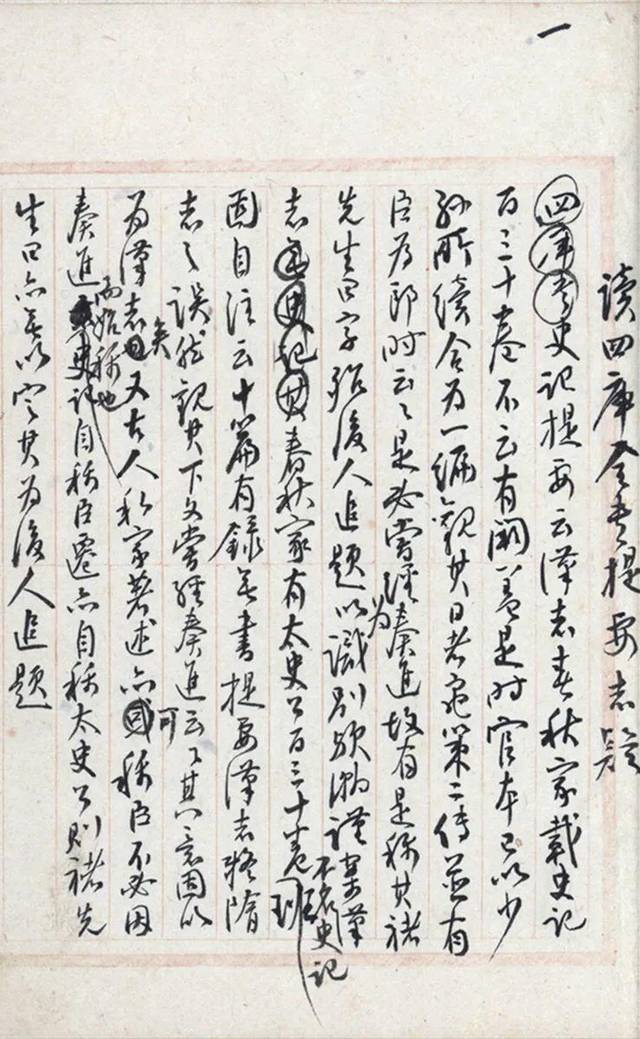 一
讀四庫全書提要志疑
四庫書史記提要云漢志春秋家載史記
百三十卷不云有闕蓋是時官本已以少
孫所續合為一編觀其日者龜策二傳並有
臣為郎時云云是必嘗經奏進故有是稱其褚
先生曰字殆後人追題以識別歟謹案漢
志史記其春秋家有太史公百三十卷班
不名史記
固自注云十篇有錄無書提要漢志將隋
志之誤然觀其下文嘗經奏進云云其意固以
為漢志矣又古人私家著述亦可稱臣不必因
奏進而始稱也史記自稱臣遷亦自稱太史公則褚先
生曰亦無以定其為後人追題